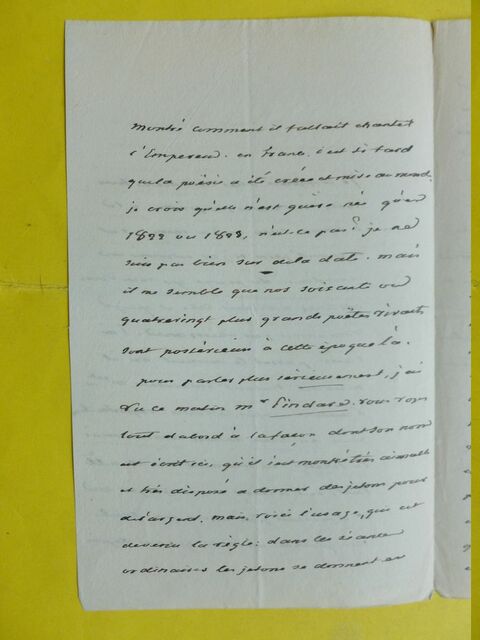 montré comment il fallait chanter
l'Empereur. en France, c'est si tard
que la poësie a été créée et mise au monde.
je crois qu'elle n'est guère née qu'en
1822 ou 1823, n'est-ce pas? je ne
suis pas bien sûr de la date. mais
il me semble que nos soixante ou
quatrevingt plus grands poëtes vivants
sont postérieurs à cette époque là.
pour parler plus sérieusement, j'ai
vu ce matin mr Pindare. vous voyez
tout d'abord à la façon dont son nom
est écrit ici, qu'il s'est montré très aimable
et très disposé a donner des jetons pour
de l'argent. mais voici l'usage, qui est
devenu la règle: dans les séances
ordinaires les jetons se donnent en